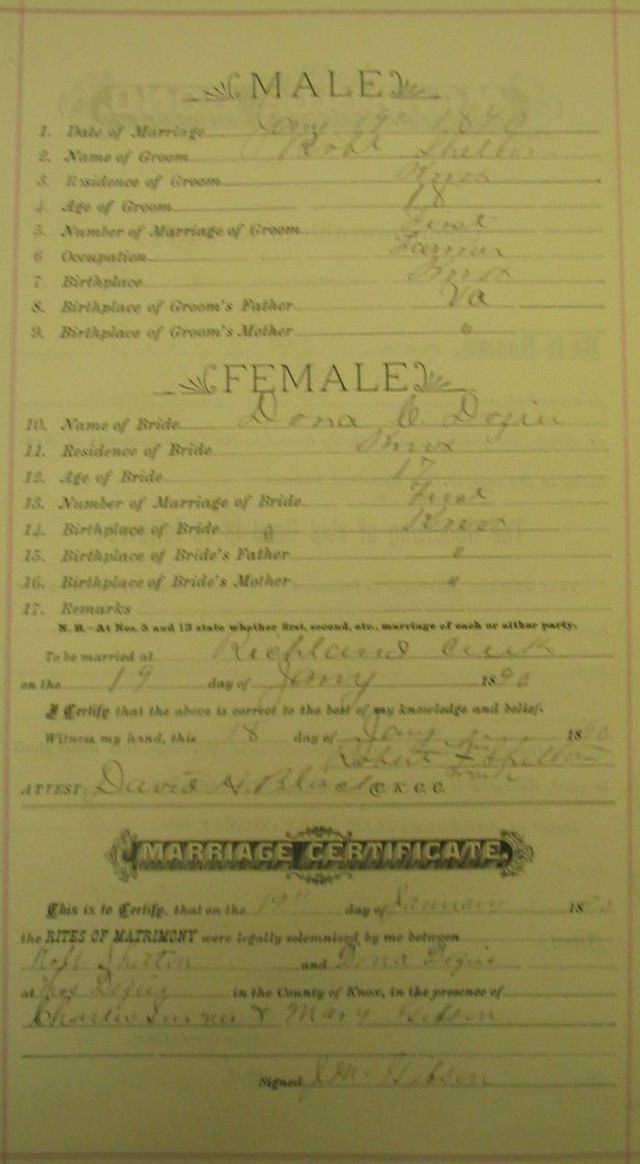 MALE
1. Date of Marriage Jany 19th 1890
2. Name of Groom Robt Shelton
3. Residence of Groom Knox
4. Age of Groom 18
5. Number of Marriage of Groom First
6 Occupation Farmer
7. Birthplace Knox
8. Birthplace of Groom's Father Va
9. Birthplace of Groom's Mother "
FEMALE
10. Name of Bride Dona C. Dozier
11. Residence of Bride Knox
12. Age of Bride 17
13. Number of Marriage of Bride First
14. Birthplace of Bride Knox
15. Birthplace of Bride's Father "
16. Birthplace of Bride's Mother "
17. Remarks
N. B.—At Nos. 5 and 13 state whether first, second, etc., marriage of each or either party.
To be married at Richland Creek
on the 19 day of Jany 1890
I Certify that the above is correct to the best of my knowledge and belief.
Witness my hand, this 18 day of Jany 1890
Robert Shelton
ATTEST: David H. Black C. K. C. C.
MARRIAGE CERTIFICATE.
This is to Certify, that on the 19th day of January 1890
the RITES OF MATRIMONY were legally solemnized by me between
Robt Shelton and Dona Dozier
at Dozier in the County of Knox, in the presence of
Charlie Turner & Mary Gibson
Signed Gibson